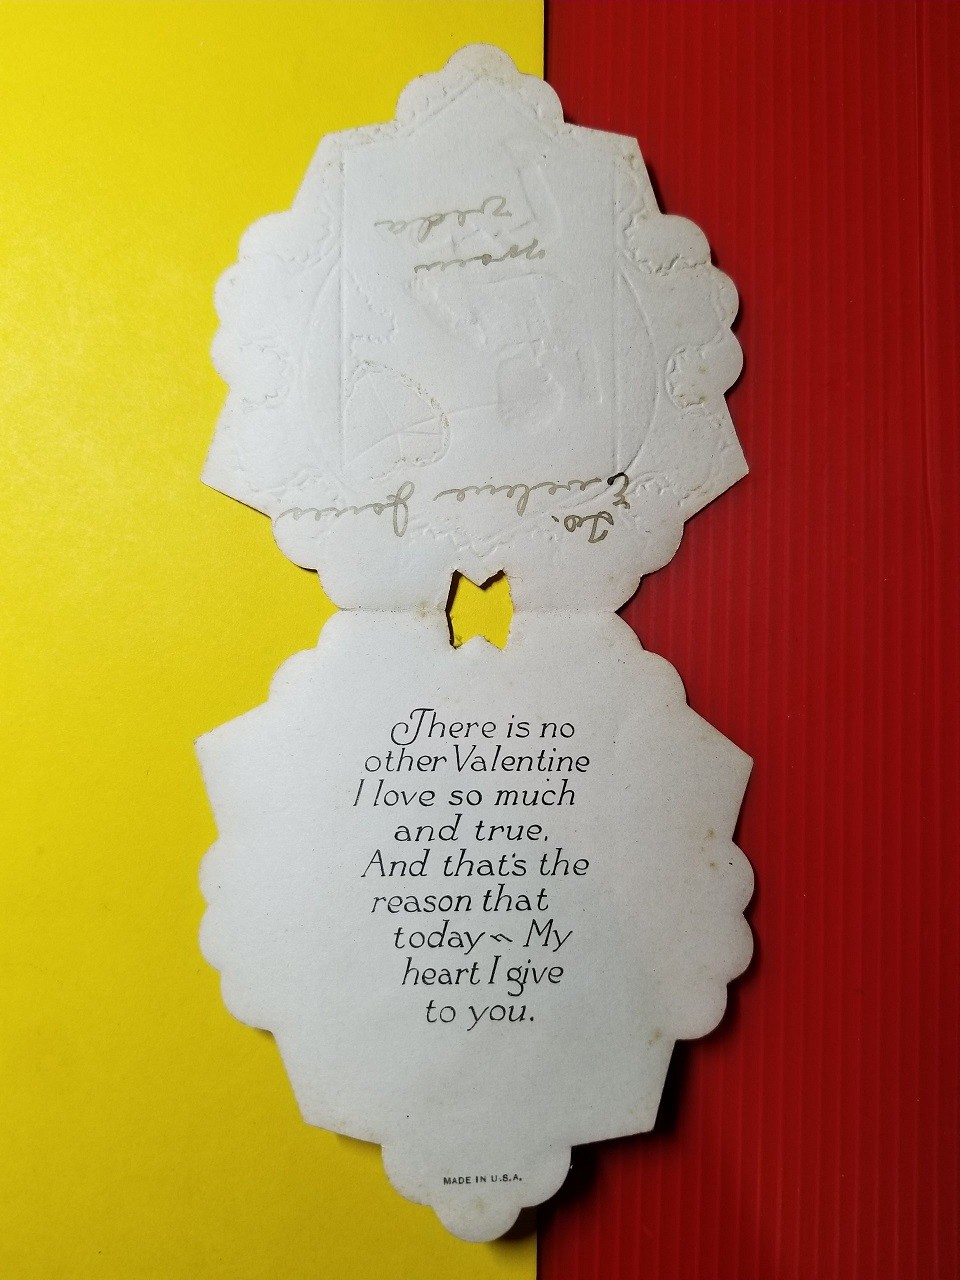 To:
Eveline Jones
from
There is no
other Valentine
I love so much
and true.
And that's the
reason that
today ~ My
heart I give
to you.
MADE IN U.S.A.